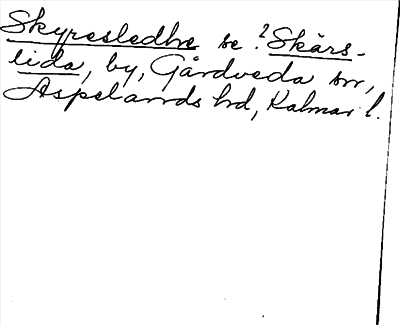 Skyresledhe se ? Skärs-
lida, by, Gårdveda sn,
Aspelands hd, Kalmar l.